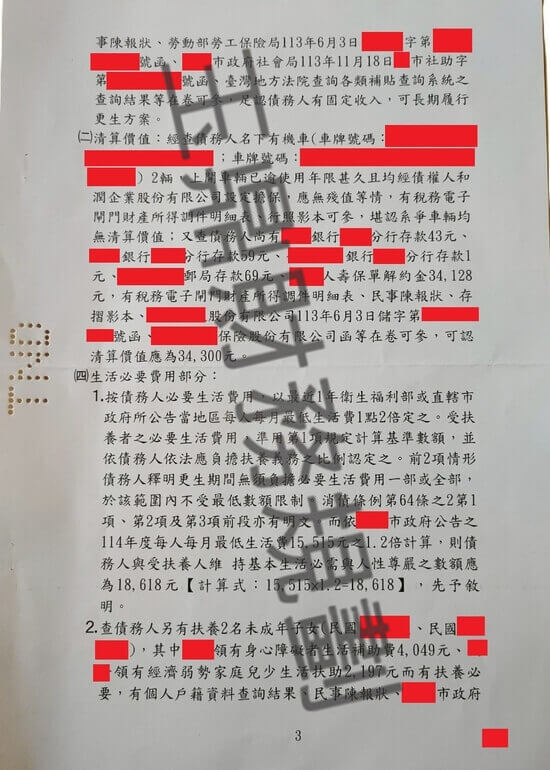 事陳報狀、勞動部勞工保險局113年6月3日 字第
號函、 市政府社會局113年11月18日 市社助字
第 號函、臺灣地方法院查詢各類補貼查詢系統之
查詢結果等在卷可參，足認債務人有固定收入，可長期履行
更生方案。
㈡清算價值：經查債務人名下有機車(車牌號碼：
；車牌號碼：
) 2輛，上開車輛已逾使用年限甚久且均經債權人和
潤企業股份有限公司設定擔保，應無殘值等情，有稅務電子
閘門財產所得調件明細表、行照影本可參，堪認系爭車輛均
無清算價值；又查債務人尚有 銀行 分行存款43元、
銀行 分行存款59元、 銀行 分行存款1
元、 郵局存款69元、 人壽保單解約金34,128
元，有稅務電子閘門財產所得調件明細表、民事陳報狀、存
摺影本、 股份有限公司113年6月3日儲字第
號函、 保險股份有限公司函等在卷可參，可認
清算價值應為34,300元。
㈣生活必要費用部分：
1.按債務人必要生活費用，以最近1年衛生福利部或直轄市
政府所公告當地區每人每月最低生活費1點2倍定之。受扶
養者之必要生活費用，準用第1項規定計算基準數額，並
依債務人依法應負擔扶養義務之比例認定之。前2項情形
債務人釋明更生期間無須負擔必要生活費用一部或全部，
於該範圍內不受最低數額限制，消債條例第64條之2第1
項、第2項及第3項前段亦有明文。而依 市政府公告之
114年度每人每月最低生活費15,515元之1.2倍計算，則債
務人與受扶養人維 持基本生活必需與人性尊嚴之數額應
為18,618元【計算式：15,515x1.2=18,618】，先予敘
明。
2.查債務人另有扶養2名未成年子女(民國 、民國
)，其中 領有身心障礙者生活補助費4,049元、
領有經濟弱勢家庭兒少生活扶助2,197元而有扶養必
要，有個人戶籍資料查詢結果、民事陳報狀、 市政府
3
TND
玉鼎財務規劃